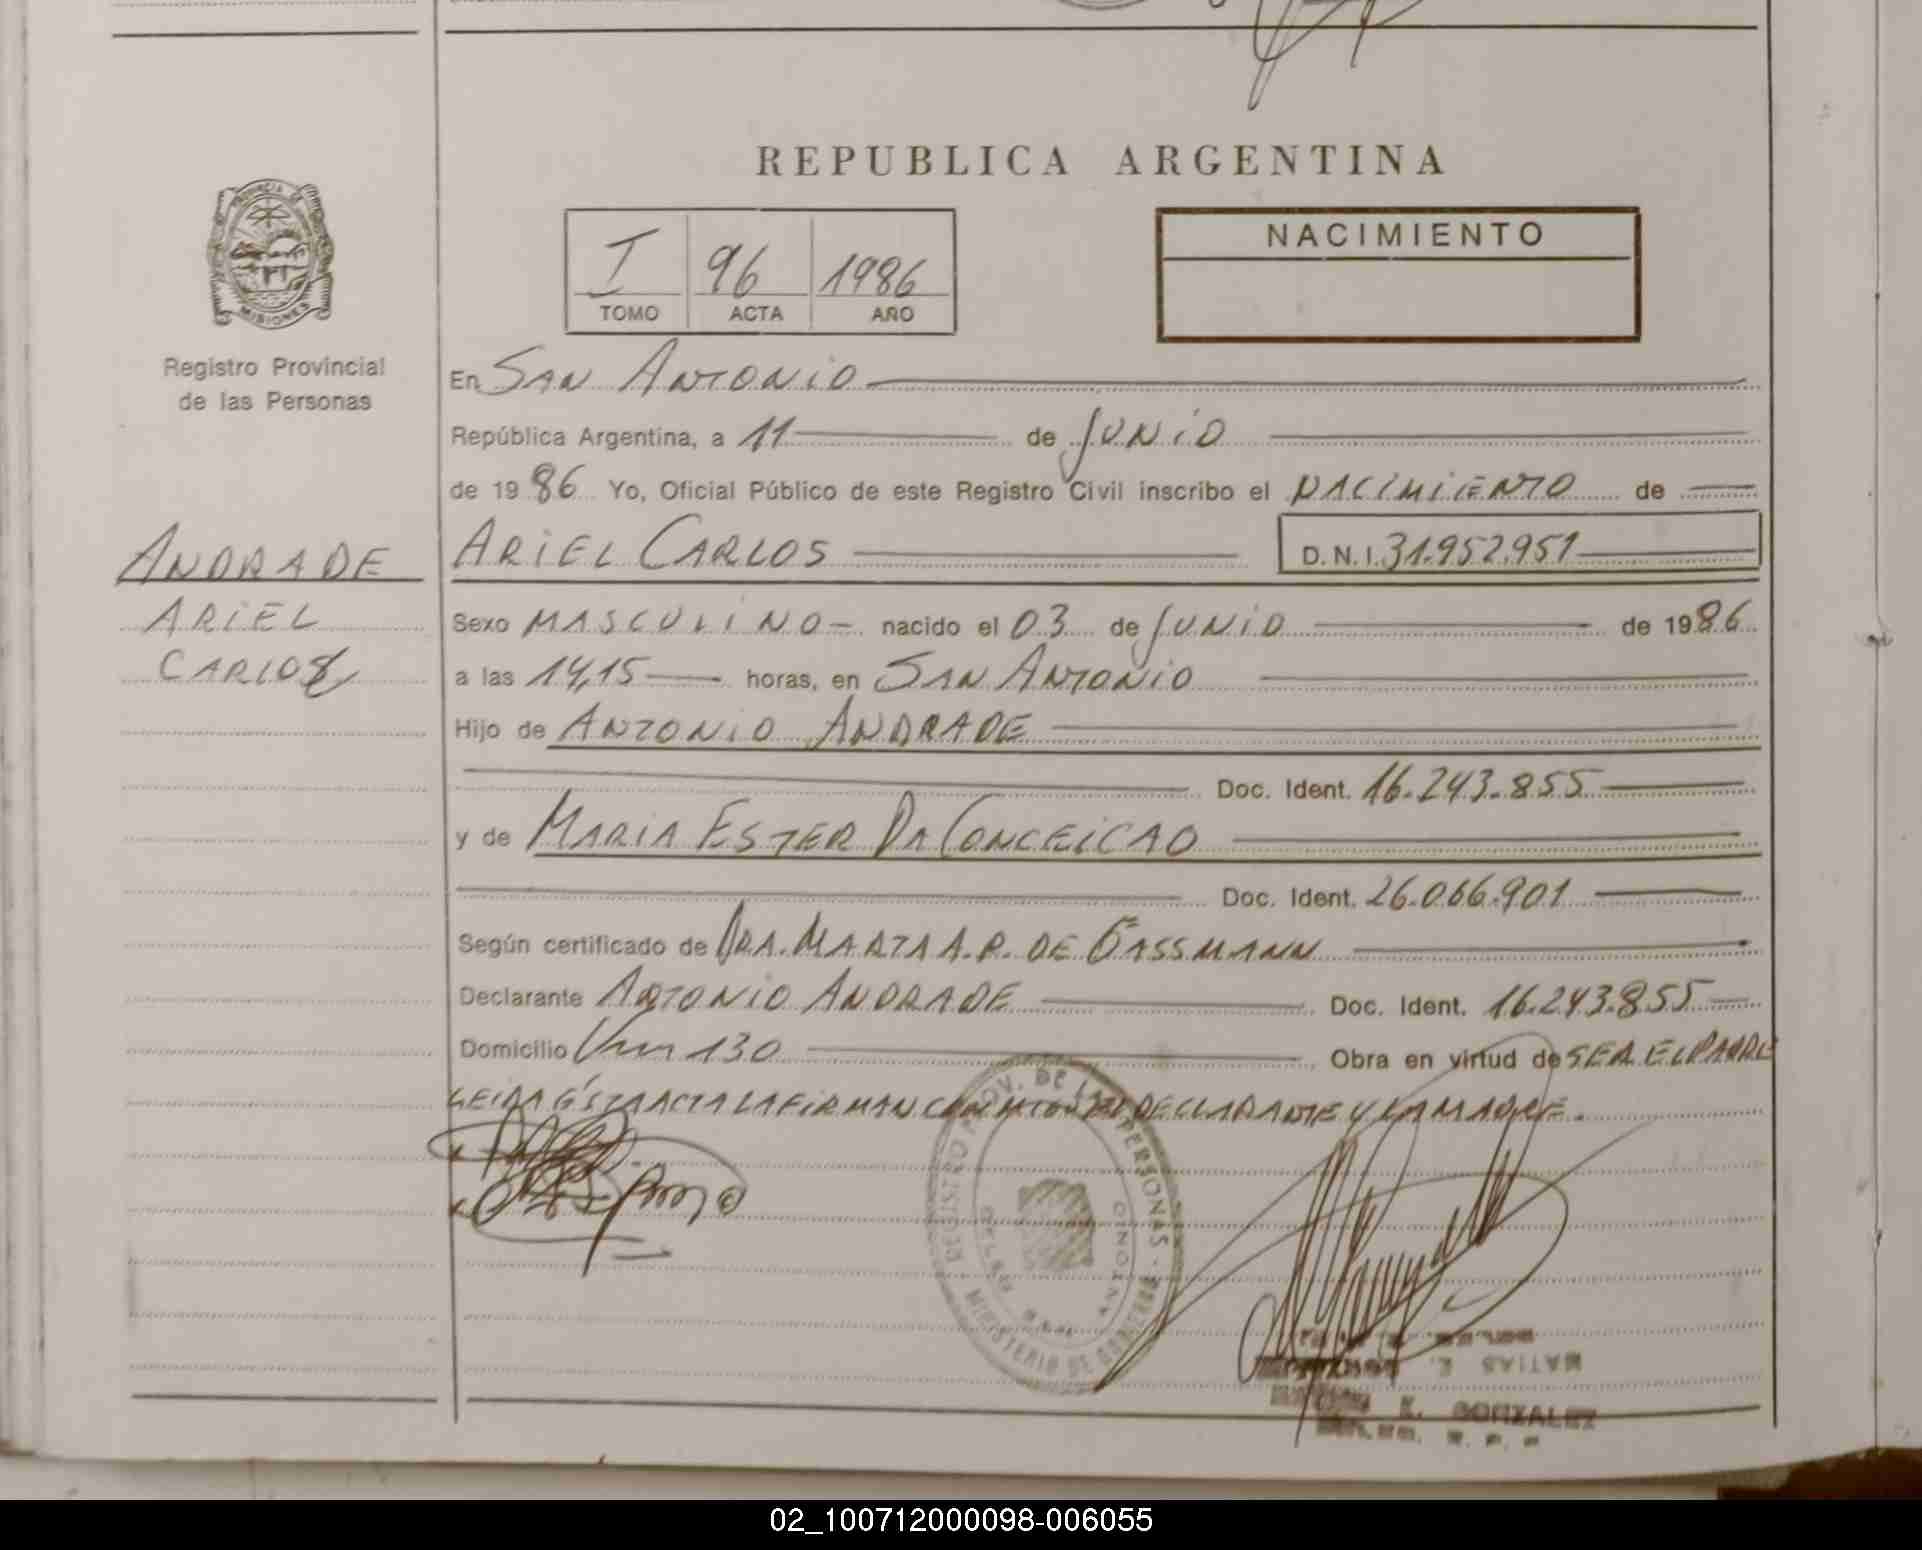 REPUBLICA ARGENTINA
PROVINCIA DE
MISIONES
Registro Provincial
de las Personas
I 96 1986
TOMO ACTA AÑO
NACIMIENTO
En SAN ANTONIO
República Argentina, a 11 de JUNIO
de 1986 Yo, Oficial Público de este Registro Civil inscribo el NACIMIENTO de
ANDRADE
ARIEL
CARLOS
ARIEL CARLOS D.N.I. 31.952.951
Sexo MASCULINO nacido el 03 de JUNIO de 1986
a las 14,15 horas, en SAN ANTONIO
Hijo de ANTONIO ANDRADE
Doc. Ident. 16.243.855
y de MARIA ESTER DA CONCEICAO
Doc. Ident. 26.066.901
Según certificado de DRA. MARTA A.R. DE GASSMANN
Declarante ANTONIO ANDRADE Doc. Ident. 16.243.855
Domicilio Km 130 Obra en virtud de SER EL PADRE
LEIDA ÉSTA ACTA LA FIRMAN CONMIGO EL DECLARANTE Y LA MADRE.
REGISTRO PROV. DE LAS PERSONAS
MINISTERIO DE GOBIERNO
ANTONIO
MATIAS E.
E. GONZALEZ
02_100712000098-006055